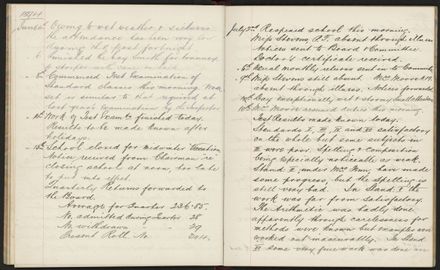 Owing to wet weather & sickness
the attendance has been very low
during the past fortnight
Commenced Test Examination of
Standard classes this morning. Work
set is similar to that required at
last year's Examination by the Inspector
Work of Test Exam to finished today.
Results to be made known after
holidays.
School closed for midwinter Vacation
Notice received from Chairman re
closing school at noon, too late
to put into effect.
Quarterly Returns forwarded to
the Board.
Average for Quarter 236.85.
No. admitted during Quarter 28
No. withdrawn " " 29
Present Roll No.
July 5th Reopened school this morning.
Miss Stevens, P.T. absent through illness
Notices sent to Board & Committee
Doctor's certificate received.
6th Usual monthly returns sent to Committee
7th Miss Stevens still absent. Miss Moore
absent through illness. Notices forwarded.
Day exceptionally wet & stormy
Miss Moore resumed duties this morning
Test Results made known today.
Standards satisfactory
on the whole but some subjects in
were poor. Spelling & Composition
being especially noticeable as weak.
Stand. II under Miss have made
some progress but the Spelling is
still very bad. In Stand. I the
work was far from satisfactory.
The Arithmetic was badly done,
apparently through carelessness for
methods were known but examples were
worked out inaccurately. In Stand
some very fine work was done in